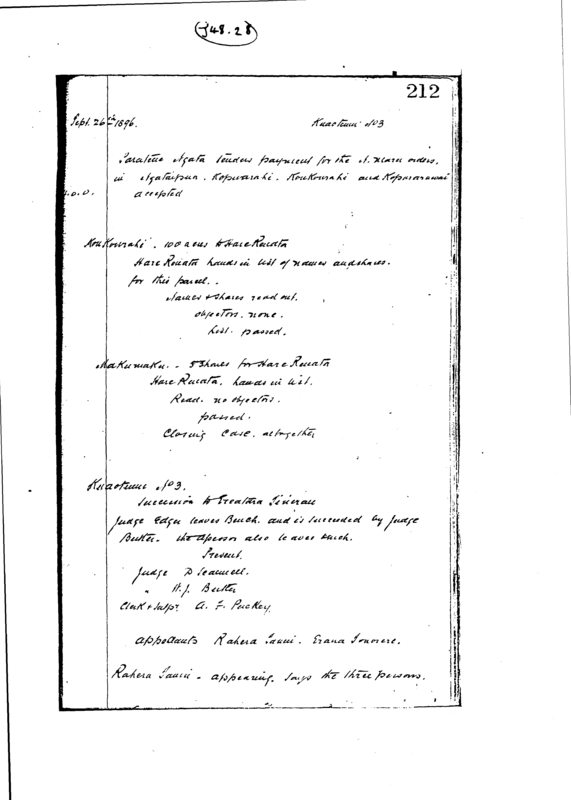 J48.28
212
Sept. 26th 1896. Kuaotunu No 3
Ngata tenders payment for the orders,
in Ngataipua. Kopuarahi. Koukourahi and
accepted
Koukourahi. 100 acres to Hare Renata
Hare Renata hands in list of names and shares.
for this parcel.
Names & Shares read out.
objectors. none.
list. passed.
Makumaku. - 5 Shares for Hare Renata
Hare Renata. hands in list.
Read. no objectors.
passed.
Closing Case. altogether
Kuaotunu No 3.
Succession to
Judge Edger leaves Bench. and is succeeded by Judge
Butler. the Assessor also leaves bench.
Present.
Judge D Scannell.
" H. J. Butler
Clerk & Intpr. A. F. Puckey
Appellants Rahera Tanui. Erana
Rahera Tanui - appearing. says the three persons.